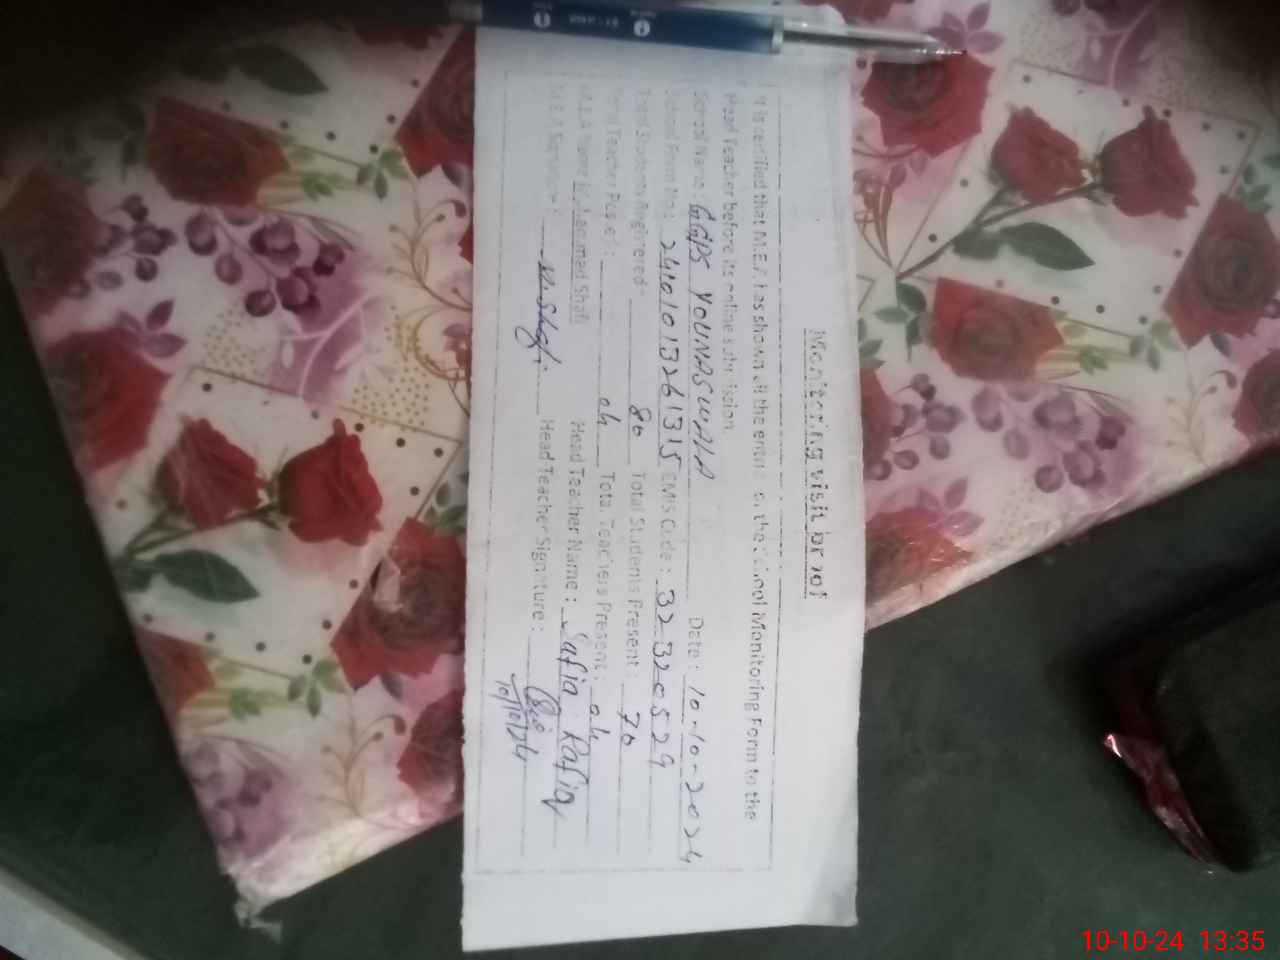 Monitoring visit proof
It is certified that M.E.A has shown all the entries on the School Monitoring Form to the
Head Teacher before its online submission.
School Name: GGPS YOUNASWALA Date: 10-10-2024
School Form No: 24101013261315 EMIS Code: 32320529
Total Students Registered: 80 Total Students Present: 70
Total Teacher Posted: 04 Total Teachers Present: 04
M.E.A Name Muhammad Shafi Head Teacher Name: Safia Rafiq
M.E.A Signature: M.Shafi Head Teacher Signature:
10/10/24
10-10-24 13:35